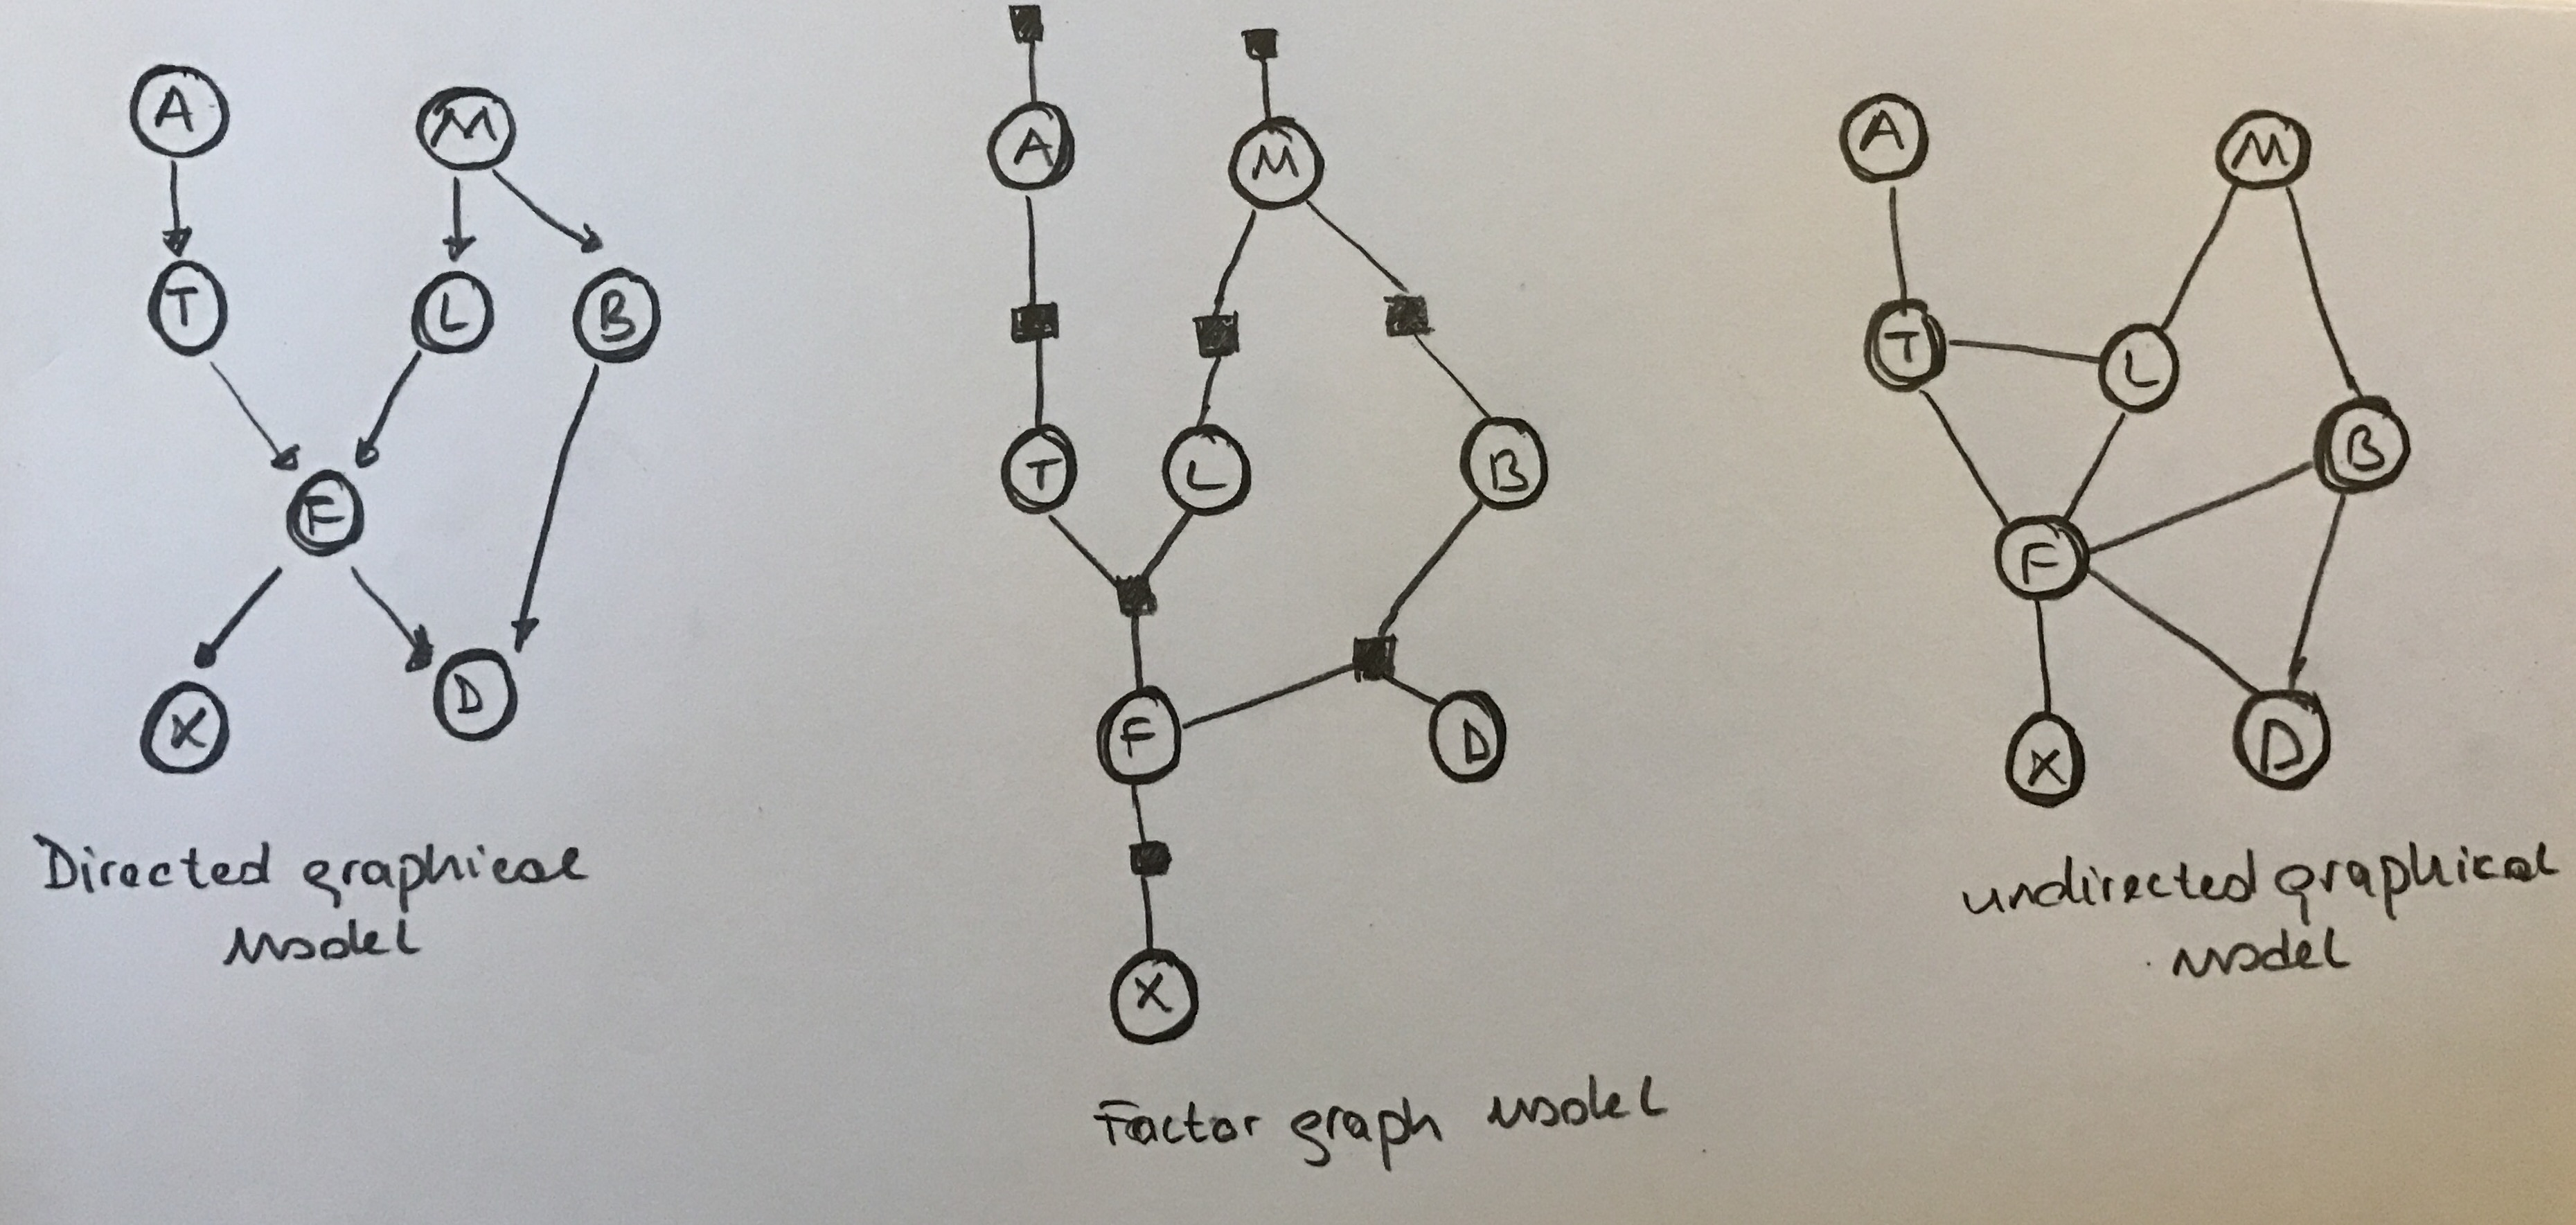 A
M
T
L
B
F
X
D
Directed graphical
Model
A
M
T
L
B
F
D
X
Factor graph Model
A
M
T
L
B
F
X
D
undirected graphical
Model